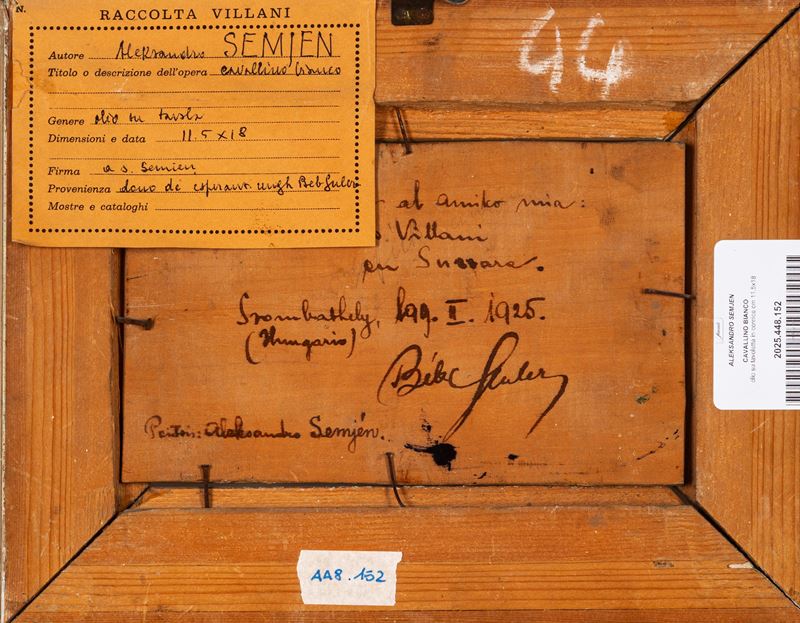 N.
RACCOLTA VILLANI
Autore Aleksandro SEMJEN
Titolo o descrizione dell'opera cavallino bianco
Genere olio su tavola
Dimensioni e data 11.5 x 18
Firma a s. Semjen
Provenienza dono di esperant. ungh Béb Guler
Mostre e cataloghi
44
al amiko mia:
Villani
en Suzzara.
Szombathely, 1925.
(Hungario)
Pentris: Aleksandro Semjén.
AA8.152
ALEKSANDRO SEMJEN
CAVALLINO BIANCO
olio su tavoletta in cornice cm 11,5x18
2025.448.152